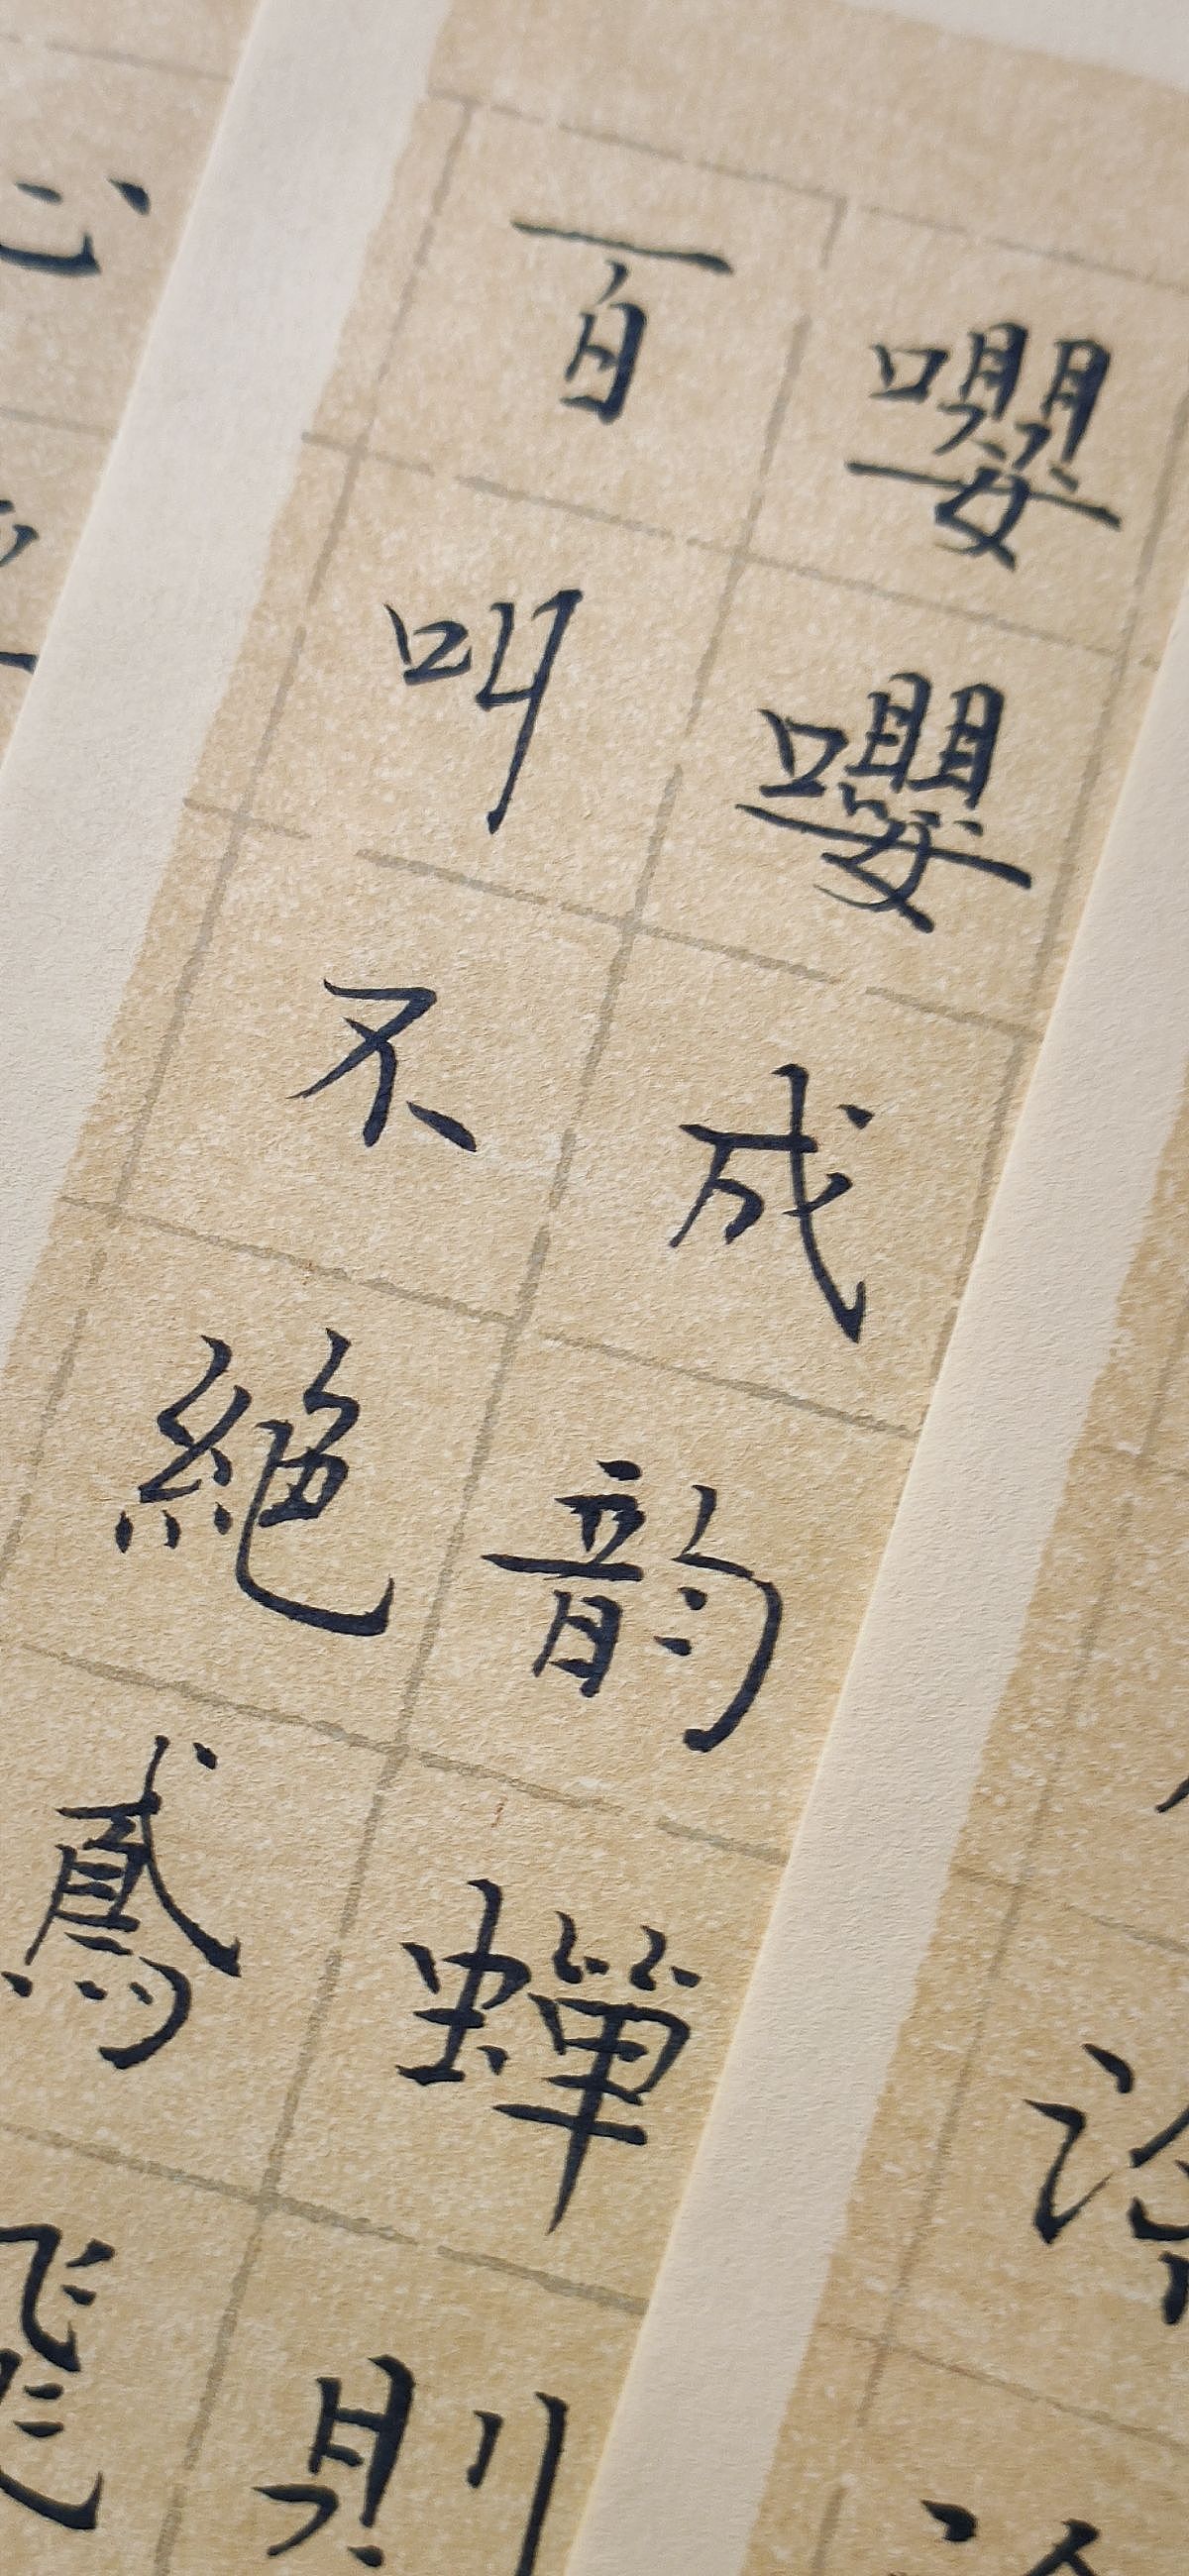 嚶嚶成韵蟬則
百叫不絕鳶飛
心